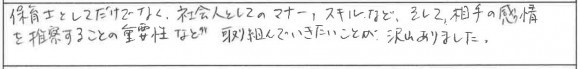 保育士としてだけでなく、社会人としてのマナー、スキルなど、そして、相手の感情
を推察することの重要性など 取り組んでいきたいことが 沢山ありました。